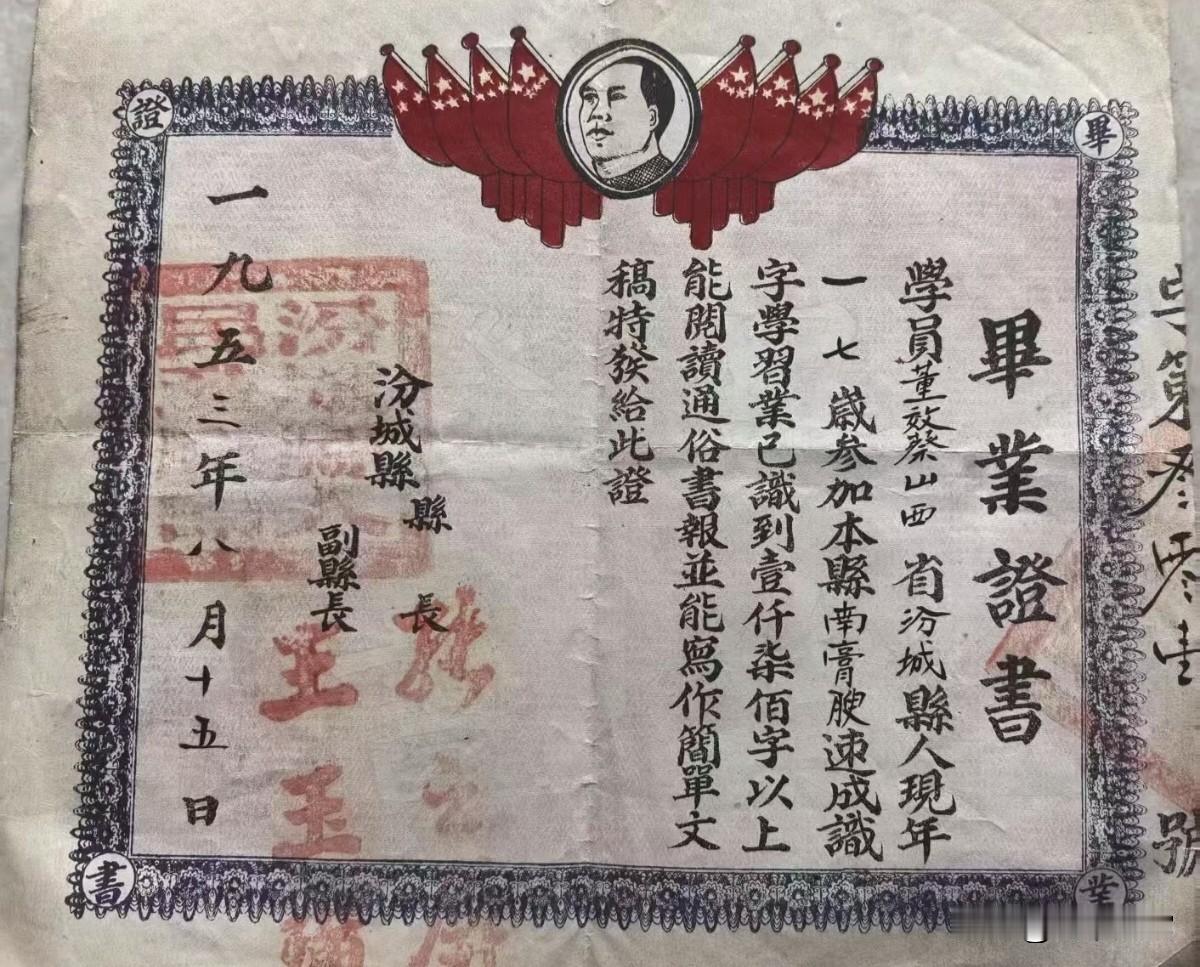 第叁零壹
號
畢業證書
學員董效蔡山西省汾城縣人現年
一七歲参加本縣南膏腴速成識
字學習業已識到壹仟柒佰字以上
能閱讀通俗書報並能寫作簡單文
稿特發給此證
汾城縣
縣長
副縣長
王玉
一九五三年八月十五日
畢
業
證
書